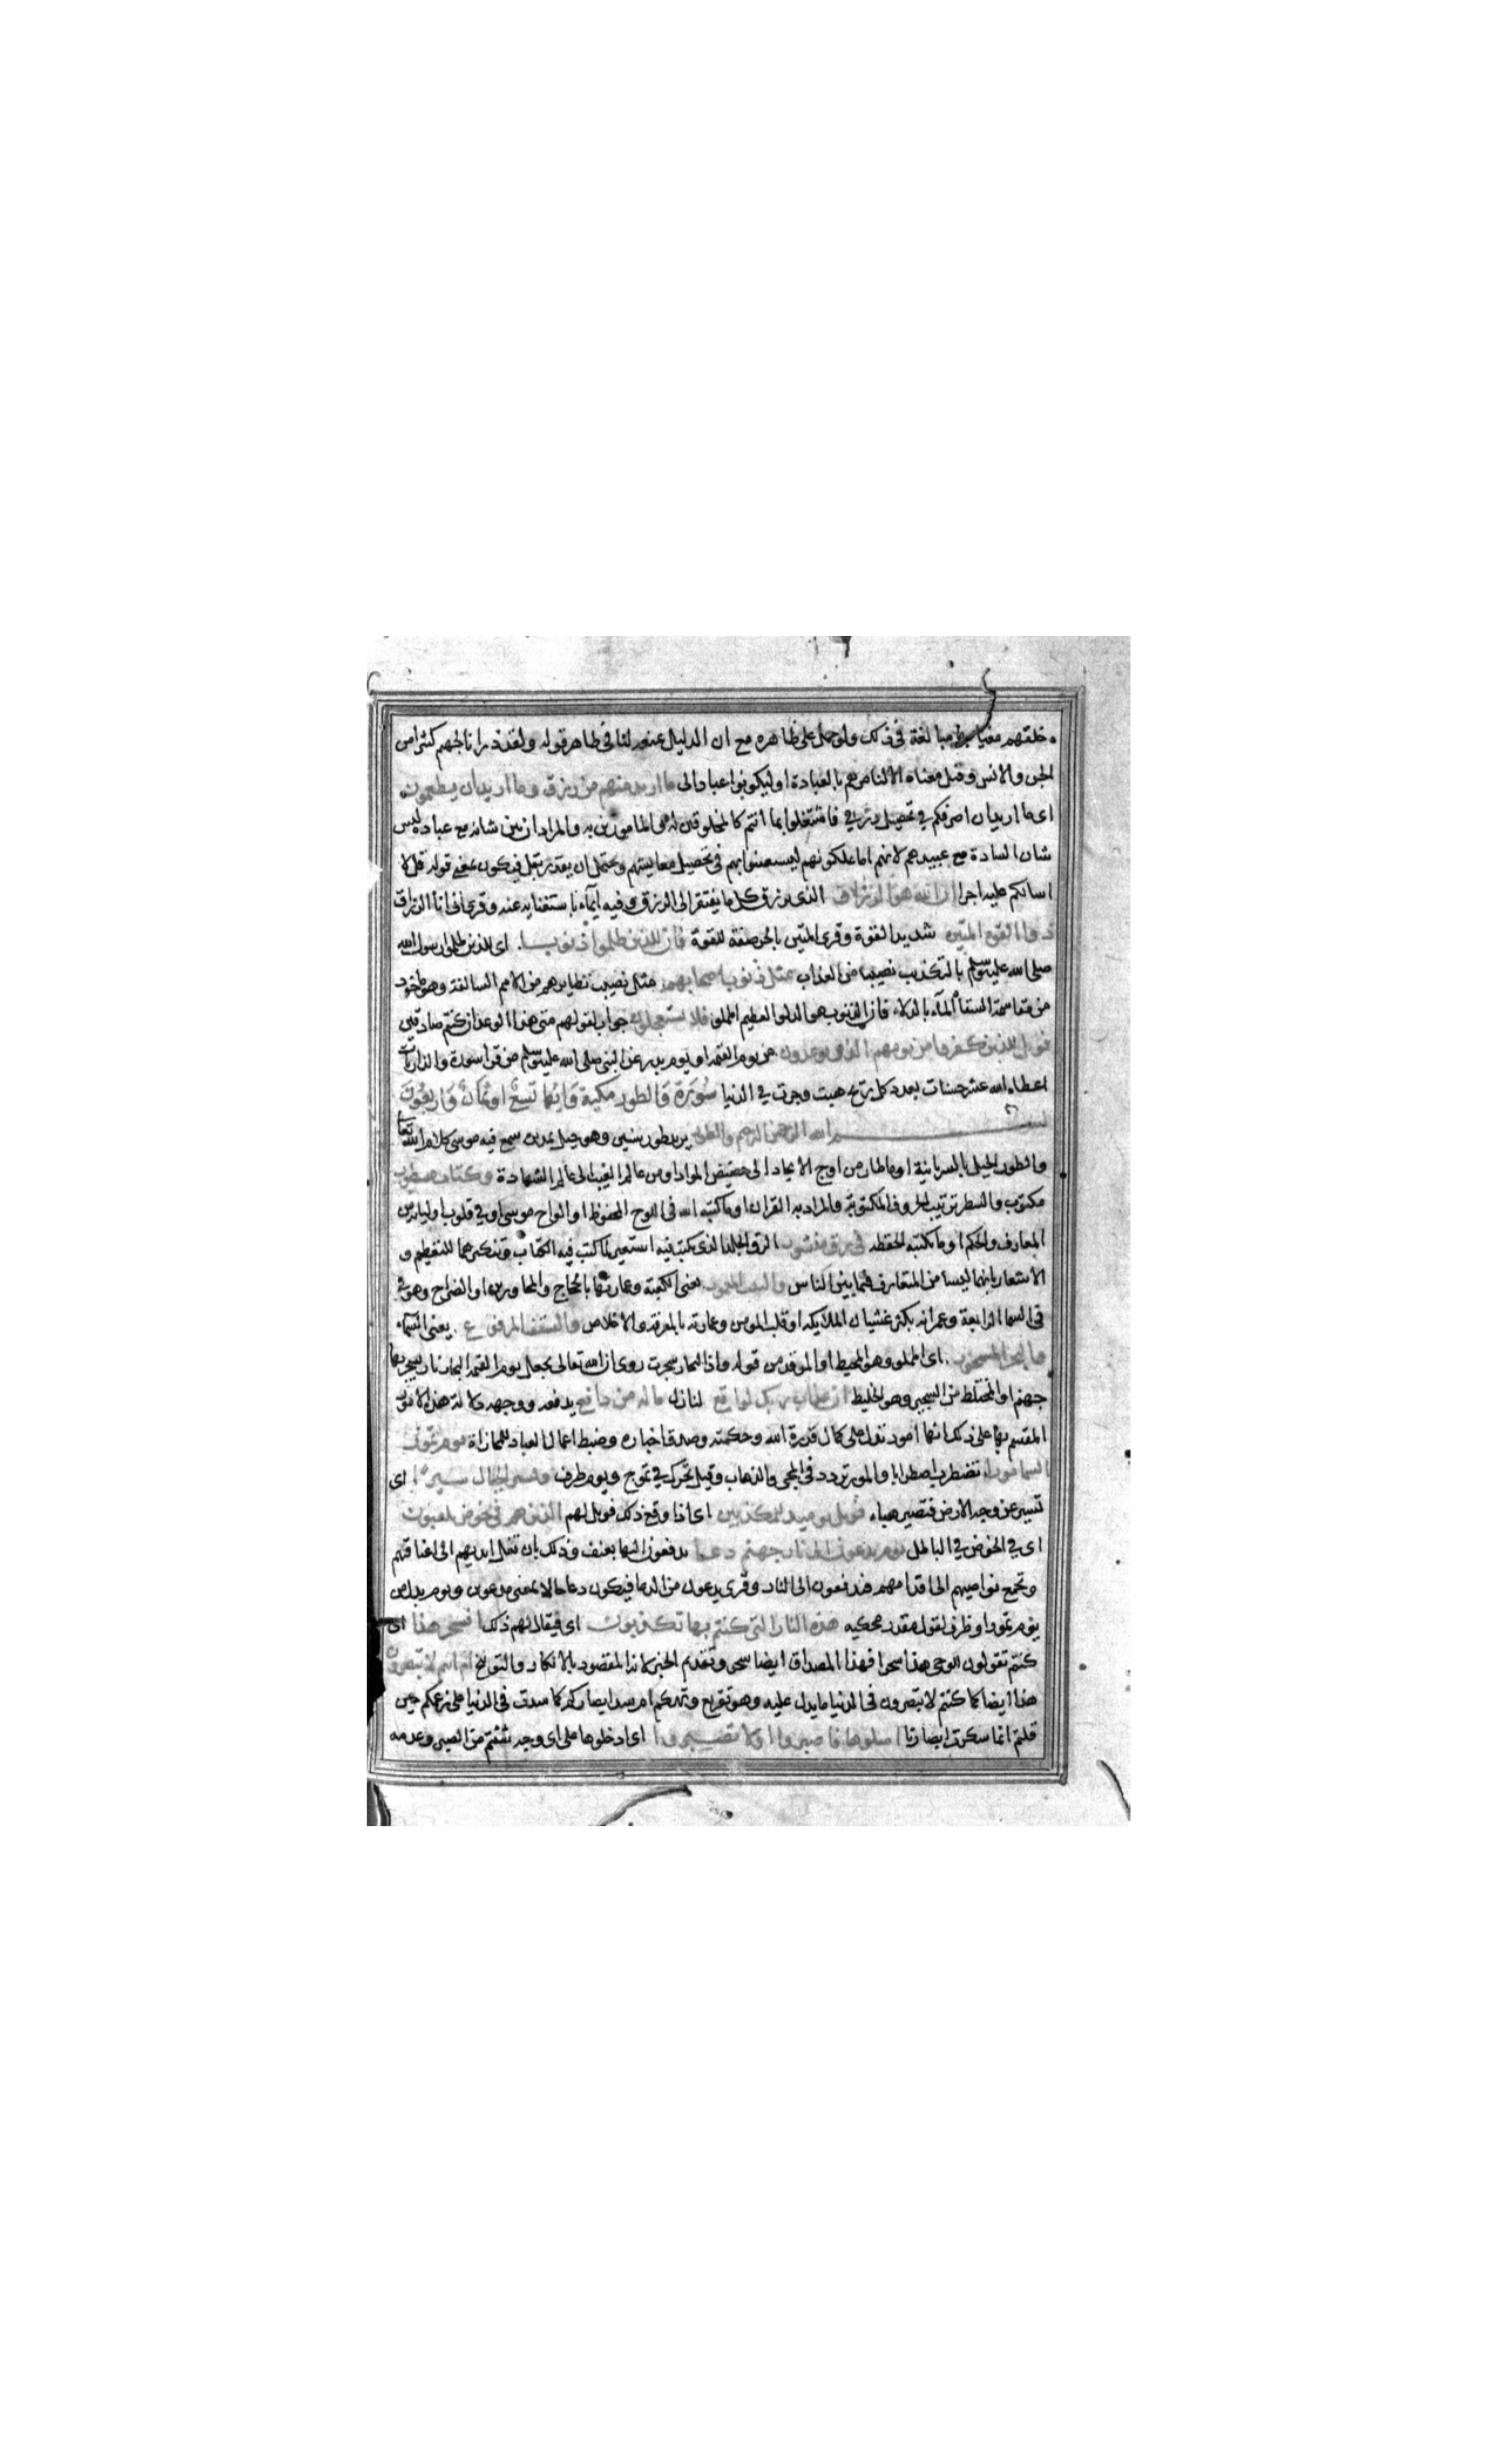 خلقهم مغيا بها مبالغة في ذلك ولو حمل على ظاهره مع ان الدليل يمنعه لنافى ظاهر قوله ولقد ذرانا لجهنم كثيرا من
الجن والانس وقيل معناه الا لنامرهم بالعبادة او ليكونوا عبادا لى ما اريد منهم من رزق وما اريد ان يطعمون
اى ما اريد ان اصرفكم في تحصيل رزقي فاشتغلوا بما انتم كالمخلوقين له والمامورين به والمراد ان يبين شانه مع عباده ليس
شان السادة مع عبيدهم لانهم انما يملكونهم ليستعينوا بهم في تحصيل معايشهم ويحتمل ان يقدر بقل فيكون بمعنى قوله قل لا
اسالكم عليه اجرا ان الله هو الرزاق الذى يرزق كل ما يفتقر الى الرزق وفيه ايماء باستغنايه عنه وقرئ اني انا الرزاق
ذو القوة المتين شديد القوة وقرئ المتين بالجر صفة للقوة فان للذين ظلموا ذنوبا اى للذين ظلموا رسول الله
صلى الله عليه وسلم بالتكذيب نصيبا من العذاب مثل ذنوب اصحابهم مثل نصيب نظايرهم من الامم السالفة وهو ماخوذ
من مقاسمة السقاة المآء بالدلاء فان الذنوب هو الدلو العظيم المملو فلا يستعجلون جواب لقولهم متى هذا الوعد ان كنتم صادقين
فويل للذين كفروا من يومهم الذى يوعدون من يوم القيمة او يوم بدر عن النبي صلى الله عليه وسلم من قرا سورة والذاريات
اعطاه الله عشر حسنات بعدد كل ريح هبت وجرت في الدنيا سورة والطور مكية وايها تسع او ثمان واربعون
بسم الله الرحمن الرحيم والطور يريد طور سينين وهو جبل بمدين سمع فيه موسى كلام الله تعا
والطور الجبل بالسريانية او ما طار من اوج الايجاد الى حضيض المواد او من عالم الغيب الى عالم الشهادة وكتاب مسطور
مكتوب والسطر ترتيب الحروف المكتوبة والمراد به القران او ما كتبه الله في اللوح المحفوظ او الواح موسى او في قلوب اوليائه من
المعارف والحكم او ما يكتبه الحفظه في رق منشور الرق الجلد الذى يكتب فيه استعير لما كتب فيه الكتاب وتنكيرهما للتعظيم و
الاشعار بانهما ليسا من المتعارف فيما بين الناس والبيت المعمور يعني الكعبة وعمارتها بالحجاج والمجاورين او الضراح وهو
في السما الرابعة وعمرانه بكثرة غشيان الملايكه او قلب المومن وعمارته بالمعرفة والاخلاص والسقف المرفوع يعني السماء
والبحر المسجور اى المملو وهو المحيط او الموقد من قوله واذا البحار سجرت روى ان الله تعالى يجعل يوم القيمة البحار نارا يسجر بها
جهنم او المختلط من السجير وهو الخليط ان عذاب ربك لواقع لنازل ما له من دافع يدفعه ووجه دلالة هذه الامور
المقسم بها على ذلك انها امور تدل على كمال قدرة الله وحكمته وصدق اخباره وضبط اعمال العباد للمجازاة يوم تمور
السما مورا تضطرب اضطرابا والمور تردد في المجى والذهاب وقيل تحرك في تموج ويوم ظرف وتسير الجبال سيرا اى
تسير عن وجه الارض فتصير هباء فويل يوميذ للمكذبين اى اذا وقع ذلك فويل لهم الذين هم في خوض يلعبون
اى في الخوض في الباطل يوم يدعون الى نار جهنم دعا يدفعون اليها بعنف وذلك بان تغل ايديهم الى اعناقهم
وتجمع نواصيهم الى اقدامهم فيدفعون الى النار وقرئ يدعون من الدعا فيكون دعا حالا بمعنى مدعوين ويوم بدل من
يوم تمور او ظرف لقول مقدر محكيه هذه النار التي كنتم بها تكذبون اى فيقال لهم ذلك افسحر هذا اى
كنتم تقولون للوحى هذا سحر افهذا المصداق ايضا سحر وتقديم الخبر لانه المقصود بالانكار والتوبيخ ام انتم لا تبصرون
هذا ايضا كما كنتم لا تبصرون في الدنيا ما يدل عليه وهو تقريع وتهكم ام سد ابصاركم كما سدت في الدنيا على زعمكم حين
قلتم انما سكرت ابصارنا اصلوها فاصبروا او لا تصبروا اى ادخلوها على اى وجه شئتم من الصبر وعدمه